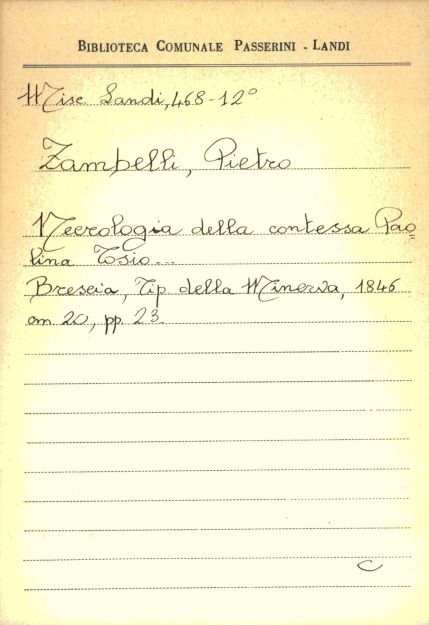 BIBLIOTECA COMUNALE PASSERINI - LANDI
Misc Landi, 468-12°
Zampelli, Pietro
Necrologia della contessa Pao=
lina Tosio...
Brescia, Tip della Minerva, 1846
cm 20, pp. 23.
C